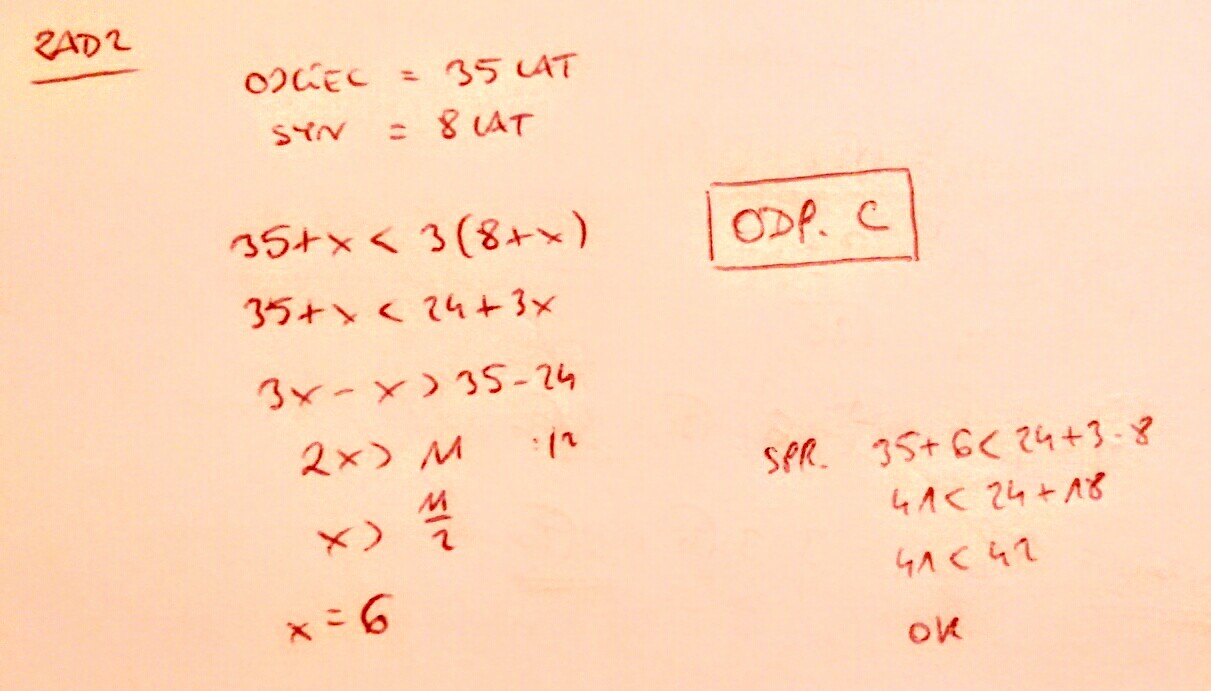 ZAD2
OJCIEC = 35 LAT
SYN = 8 LAT
35+x < 3(8+x)
35+x < 24+3x
3x-x > 35-24
2x > 11 :/2
x > 11/2
x = 6
ODP. C
SPR. 35+6 < 24+3·8
41 < 24+18
41 < 42
OK